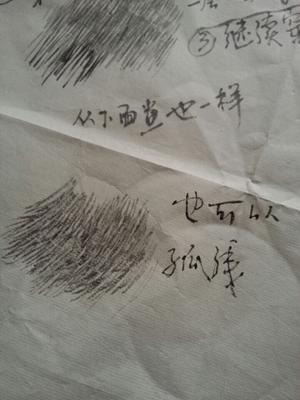 ③继续
从下面当也一样
也可以
孤线